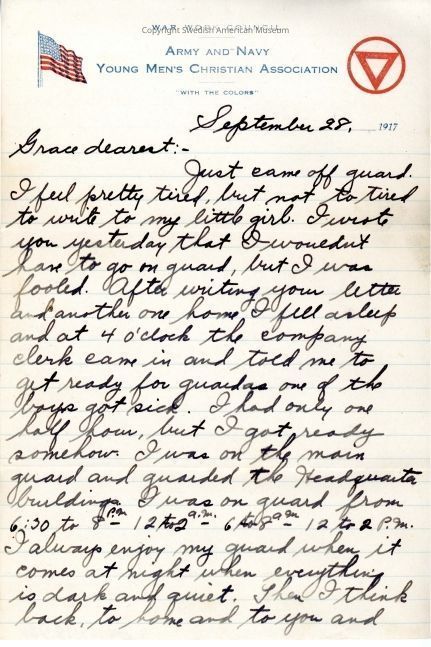 WAR WORK COUNCIL
Copyright Swedish American Museum
ARMY AND NAVY
YOUNG MEN'S CHRISTIAN ASSOCIATION
"WITH THE COLORS"
September 28, 1917
Grace dearest:-
Just came off guard.
I feel pretty tired, but not to tired
to write to my little girl. I wrote
you yesterday that I wouldn't
have to go on guard, but I was
fooled. After writing your letter
and another one home I fell asleep
and at 4 o'clock the company
clerk came in and told me to
get ready for guard as one of the
boys got sick. I had only one
half hour, but I got ready
somehow. I was on the main
guard and guarded the Headquarter
buildings. I was on guard from
6:30 to 8 P.M. – 12 to 2 a.m. – 6 to 8 a.m. – 12 to 2 P.M.
I always enjoy my guard when it
comes at night when everything
is dark and quiet. Then I think
back, to home and to you and